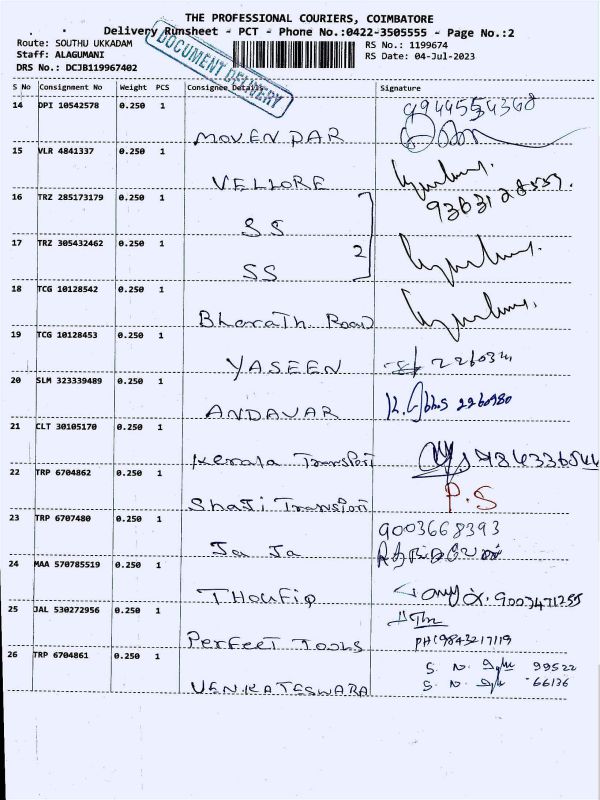 THE PROFESSIONAL COURIERS, COIMBATORE
Delivery Runsheet - PCT - Phone No.:0422-3505555 - Page No.:2
Route: SOUTHU UKKADAM
RS No.: 1199674
Staff: ALAGUMANI
RS Date: 04-Jul-2023
DRS No.: DCJB119967402
DOCUMENT DELIVERY
S No Consignment No Weight PCS Consignee Details Signature
14 DPI 10542578 0.250 1
9944554368
MOVENDAR
15 VLR 4841337 0.250 1
VELLORE
16 TRZ 285173179 0.250 1
SS
17 TRZ 305432462 0.250 1
2
SS
18 TCG 10128542 0.250 1
Bharath Road
19 TCG 10128453 0.250 1
YASEEN
20 SLM 323339489 0.250 1
ANDAVAR K. Abbs 2260980
21 CLT 30105170 0.250 1
Kerala Transport
22 TRP 6704862 0.250 1
P.S
Shaji Transport
23 TRP 6707480 0.250 1
9003668393
Ja Ja
24 MAA 570785519 0.250 1
THoufiq 9003471255
25 JAL 530272956 0.250 1
Perfect Tools PH:9843217119
26 TRP 6704861 0.250 1
S. N. 99522
VENKATESWARA S. N. 66136